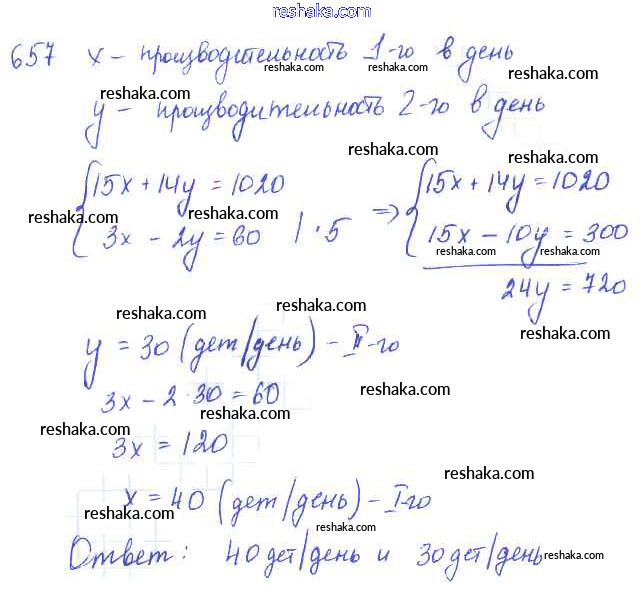 reshaka.com
657 x – производительность 1-го в день
reshaka.com reshaka.com reshaka.com
reshaka.com
y – производительность 2-го в день
reshaka.com
reshaka.com
{ 15x + 14y = 1020 => { 15x + 14y = 1020
reshaka.com reshaka.com reshaka.com
3x – 2y = 60 | · 5 15x – 10y = 300
reshaka.com reshaka.com
24y = 720
reshaka.com reshaka.com
reshaka.com
y = 30 (дет/день) – II-го
reshaka.com
3x – 2 · 30 = 60
reshaka.com
reshaka.com
3x = 120
reshaka.com
x = 40 (дет/день) – I-го
reshaka.com
reshaka.com
Ответ: 40 дет/день и 30 дет/день
reshaka.com
reshaka.com